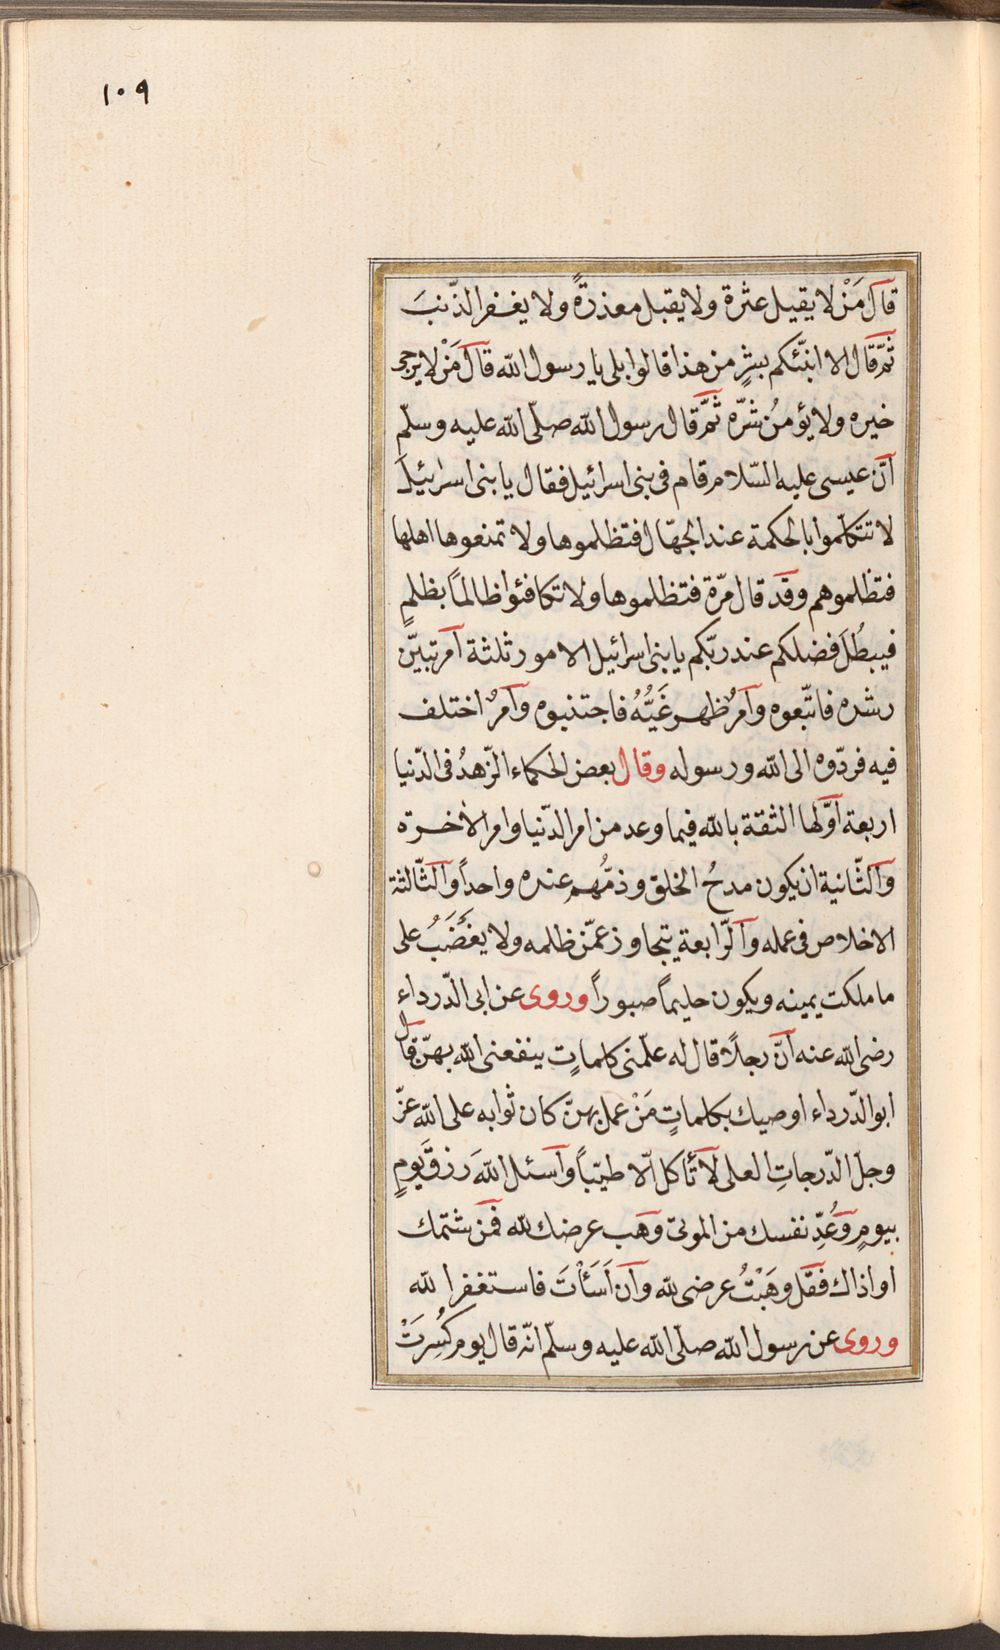 ١٠٩
قال مَنْ لا يقيل عثرة ولا يقبل معذرةً ولا يغفر الذّنبَ
ثمّ قال الا انبّئكم بشرٍّ من هذا قالوا بلى يا رسول الله قال مَنْ لا يرجى
خيره ولا يؤمنُ شرّه ثمّ قال رسول الله صلّى الله عليه وسلّم
انّ عيسى عليه السّلام قام فى بنى اسرائيل فقال يا بنى اسرائيلَ
لا تتكلّموا بالحكمة عند الجهّال فتظلموها ولا تمنعوها اهلها
فتظلموهم وقد قال مرّة فتظلموها ولا تكافئوا ظالماً بظلمٍ
فيبطُلَ فضلكم عند ربّكم يا بنى اسرائيل الامور ثلثة امر تبيّن
رشده فاتّبعوه وامرٌ ظهر غَيُّهُ فاجتنبوه وامرٌ اختلف
فيه فردّوه الى الله ورسوله وقال بعض الحكماء الزّهدُ فى الدّنيا
اربعة اوّلها الثقة بالله فيما وعد من امر الدّنيا وامر الاخرة
والثّانية ان يكون مدحُ الخلق وذمُّهم عنده واحداً والثّالثة
الاخلاص فى عمله والرّابعة يتجاوز عمّن ظلمه ولا يغضَبُ على
ما ملكت يمينه ويكون حليماً صبوراً وروى عن ابى الدّرداء
رضى الله عنه انّ رجلاً قال له علّمنى كلماتٍ ينفعنى الله بهنّ قال
ابو الدّرداء اوصيك بكلماتٍ مَنْ عمل بهنّ كان ثوابه على الله عزّ
وجل الدّرجاتِ العلى لا تأكل الّا طيّباً واسئل اللهَ رزقَ يومٍ
بيومٍ وعُدِّ نفسك من الموتى وهب عرضك لله فمن شتمك
او اذاك فقل وهَبْتُ عرضى لله وان اَسَأتَ فاستغفر الله
وروى عن رسول الله صلّى الله عليه وسلّم انّه قال يوم كُسِرَتْ